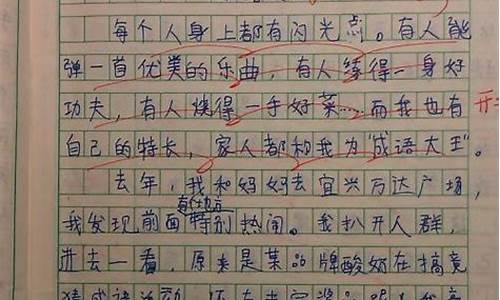 每个人身上都有闪光点。有人能
弹一首优美的乐曲，有人练得一身好
功夫，有人烧得一手好菜……而我也有
开
自己的特长，家人都和我为“成语大王”。
去年，我和妈妈去宜兴万达广场，
有个地方
我发现前面特别热闹。我扒开人群，
进去一看，原来是某品牌酸奶在搞竞
猜成语活动